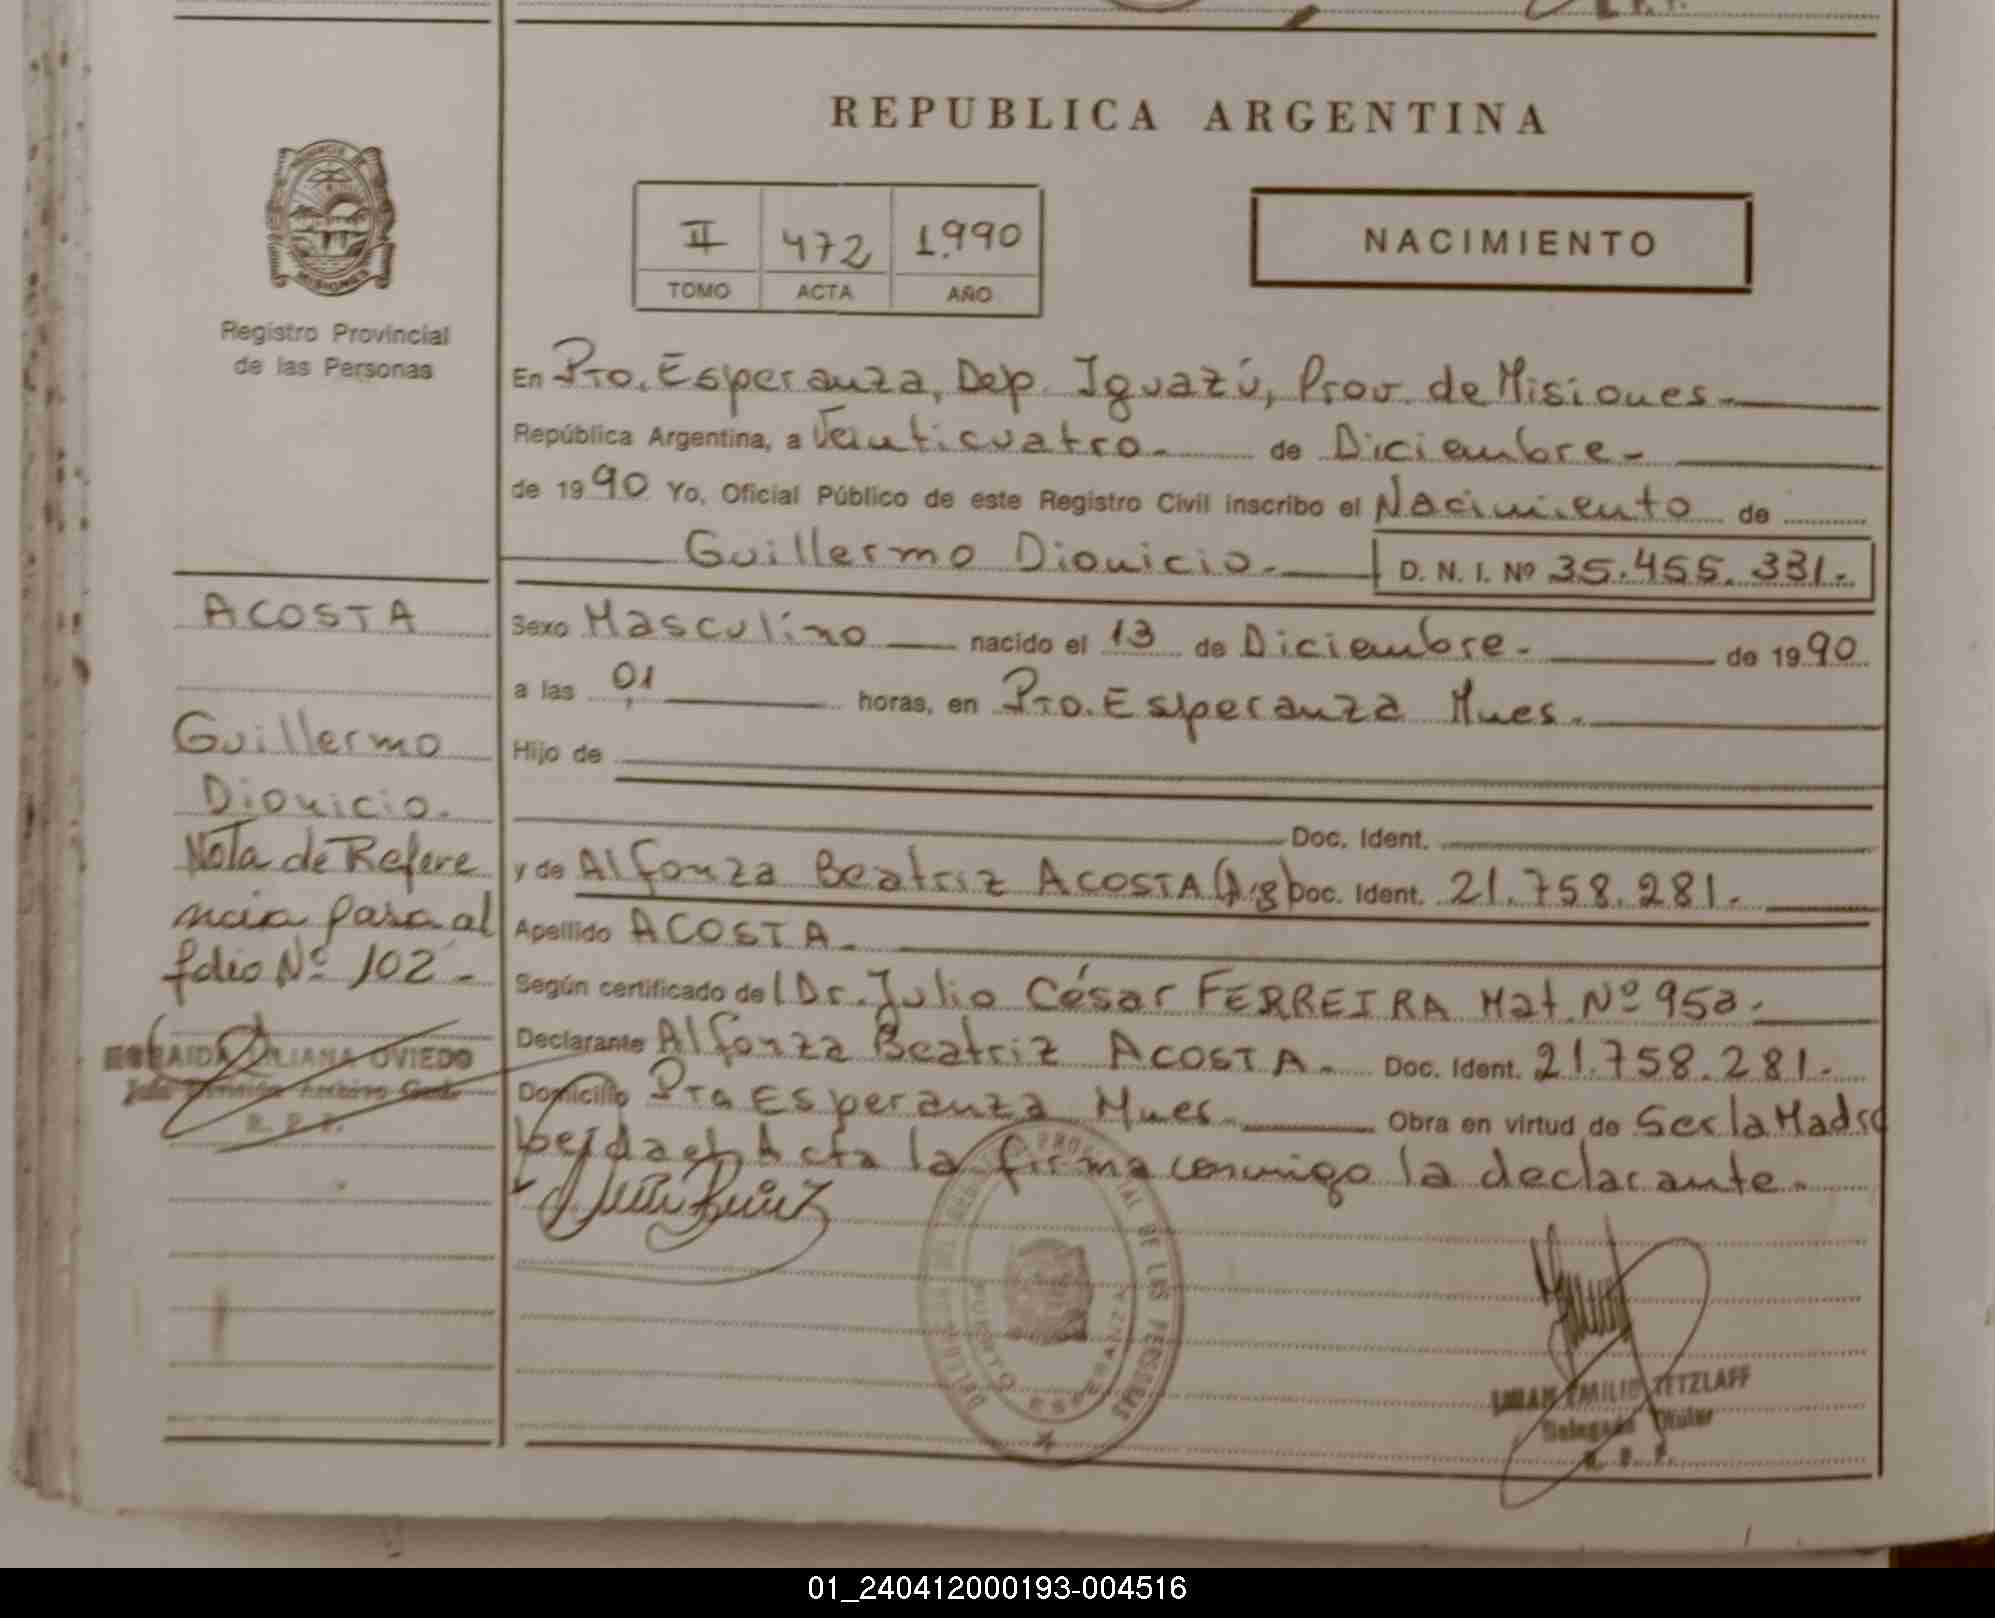 REPUBLICA ARGENTINA
II 472 1.990
TOMO ACTA AÑO
NACIMIENTO
Registro Provincial
de las Personas
En Pto. Esperanza, Dep. Iguazú, Prov. de Misiones.
República Argentina, a Veinticuatro. de Diciembre.
de 1990 Yo, Oficial Público de este Registro Civil inscribo el Nacimiento de
Guillermo Dionicio. D. N. I. Nº 35.455.331.
Sexo Masculino nacido el 13 de Diciembre. de 1990
a las 01 horas, en Pto. Esperanza Mnes.
Hijo de
Doc. Ident.
y de Alfonza Beatriz ACOSTA (Arg) Doc. Ident. 21.758.281.
Apellido ACOSTA.
Según certificado del Dr. Julio César FERREIRA Mat. Nº
Declarante Alfonza Beatriz ACOSTA. Doc. Ident. 21.758.281.
Domicilio Pto Esperanza Mnes. Obra en virtud de Ser la Madre
leida el Acta la firma conmigo la declarante.
ACOSTA
Guillermo
Dionicio.
Nota de Refere
ncia pasa al
folio Nº 102.
LILIANA OVIEDO
R. P. P.
PROVINCIAL DE LAS PERSONAS
PUERTO ESPERANZA
EMILIO TETZLAFF
Delegado Titular
R. P. P.
01_240412000193-004516